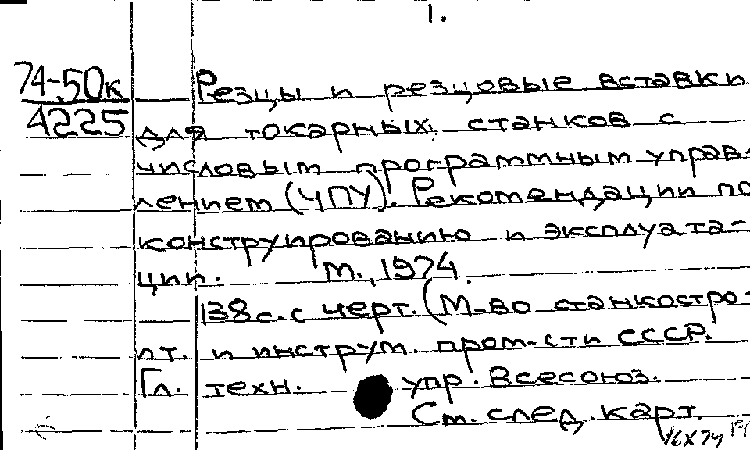 1.
74-50к
4225
Резцы и резцовые вставки
для токарных станков с
числовым программным управ-
лением (ЧПУ). Рекомендации по
конструированию и эксплуата-
ции. М., 1974.
138с. с черт. (М-во станкостро-
ит. и инструм. пром-сти СССР.
Гл. техн. упр. Всесоюз.
См. след. карт.